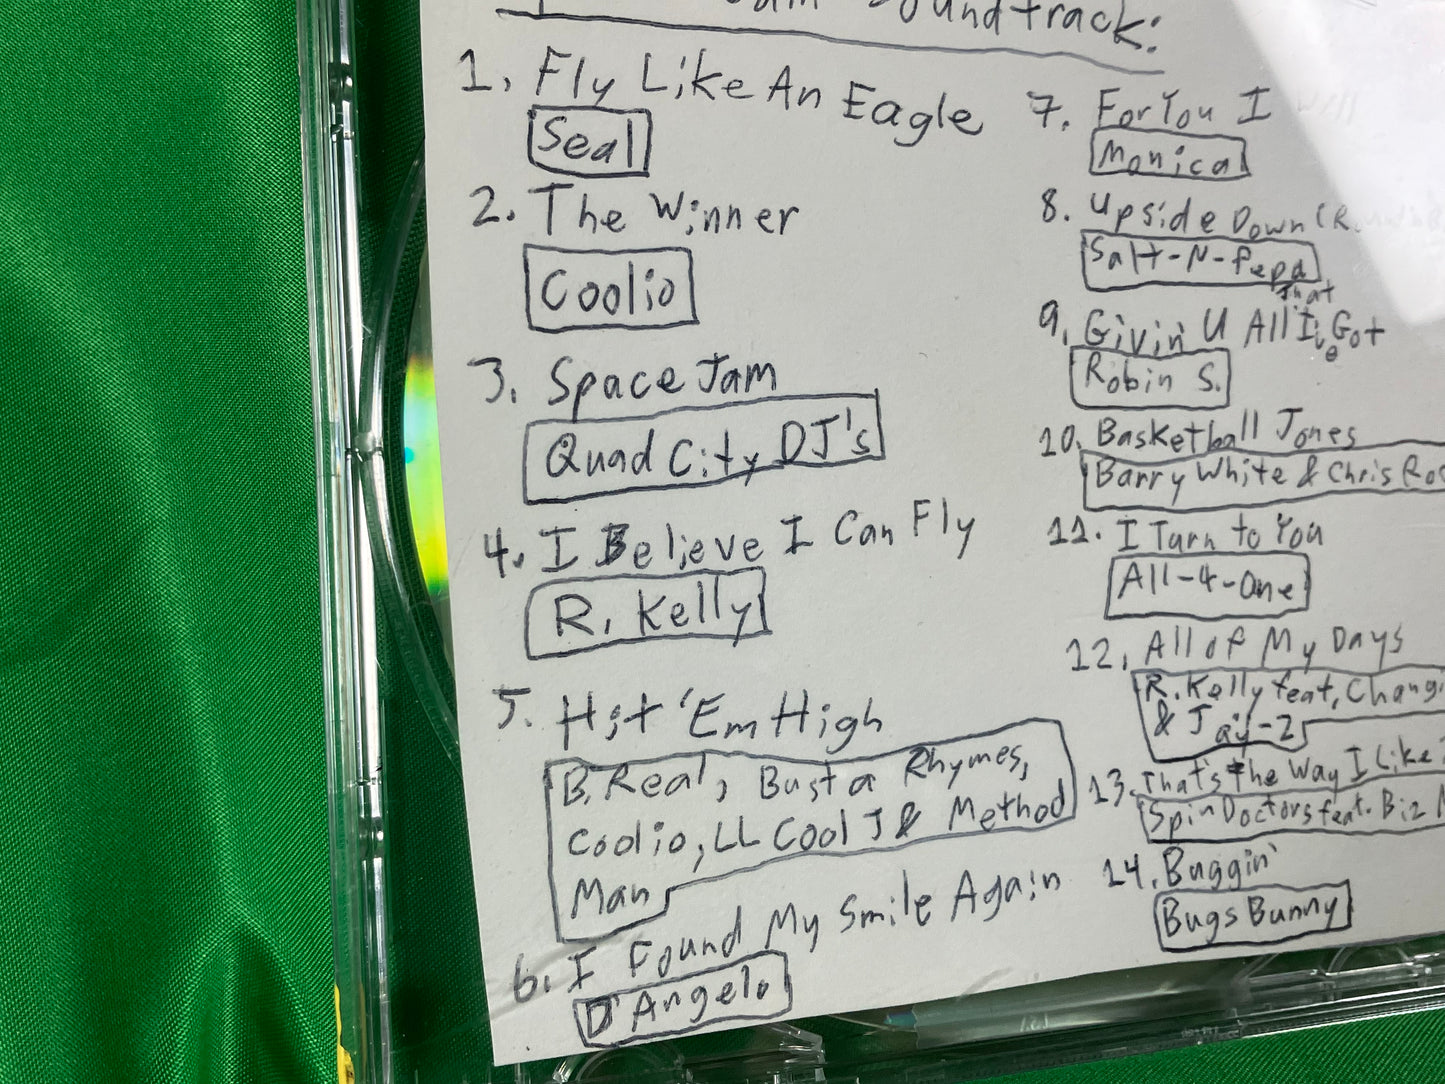 Soundtrack:
1. Fly Like An Eagle
Seal
2. The Winner
Coolio
3. Space Jam
Quad City DJ's
4. I Believe I Can Fly
R. Kelly
5. Hit 'Em High
B. Real, Busta Rhymes,
Coolio, LL Cool J & Method
Man
6. I Found My Smile Again
D'Angelo
7. For You I
Monica
8. Upside Down
Salt-N-Pepa
that
9. Givin' U All I've Got
Robin S.
10. Basketball Jones
Barry White & Chris
11. I Turn to You
All-4-One
12. All of My Days
R. Kelly feat. Changi
& Jay-Z
13. That's The Way I Like
Spin Doctors feat. Biz
14. Buggin'
Bugs Bunny